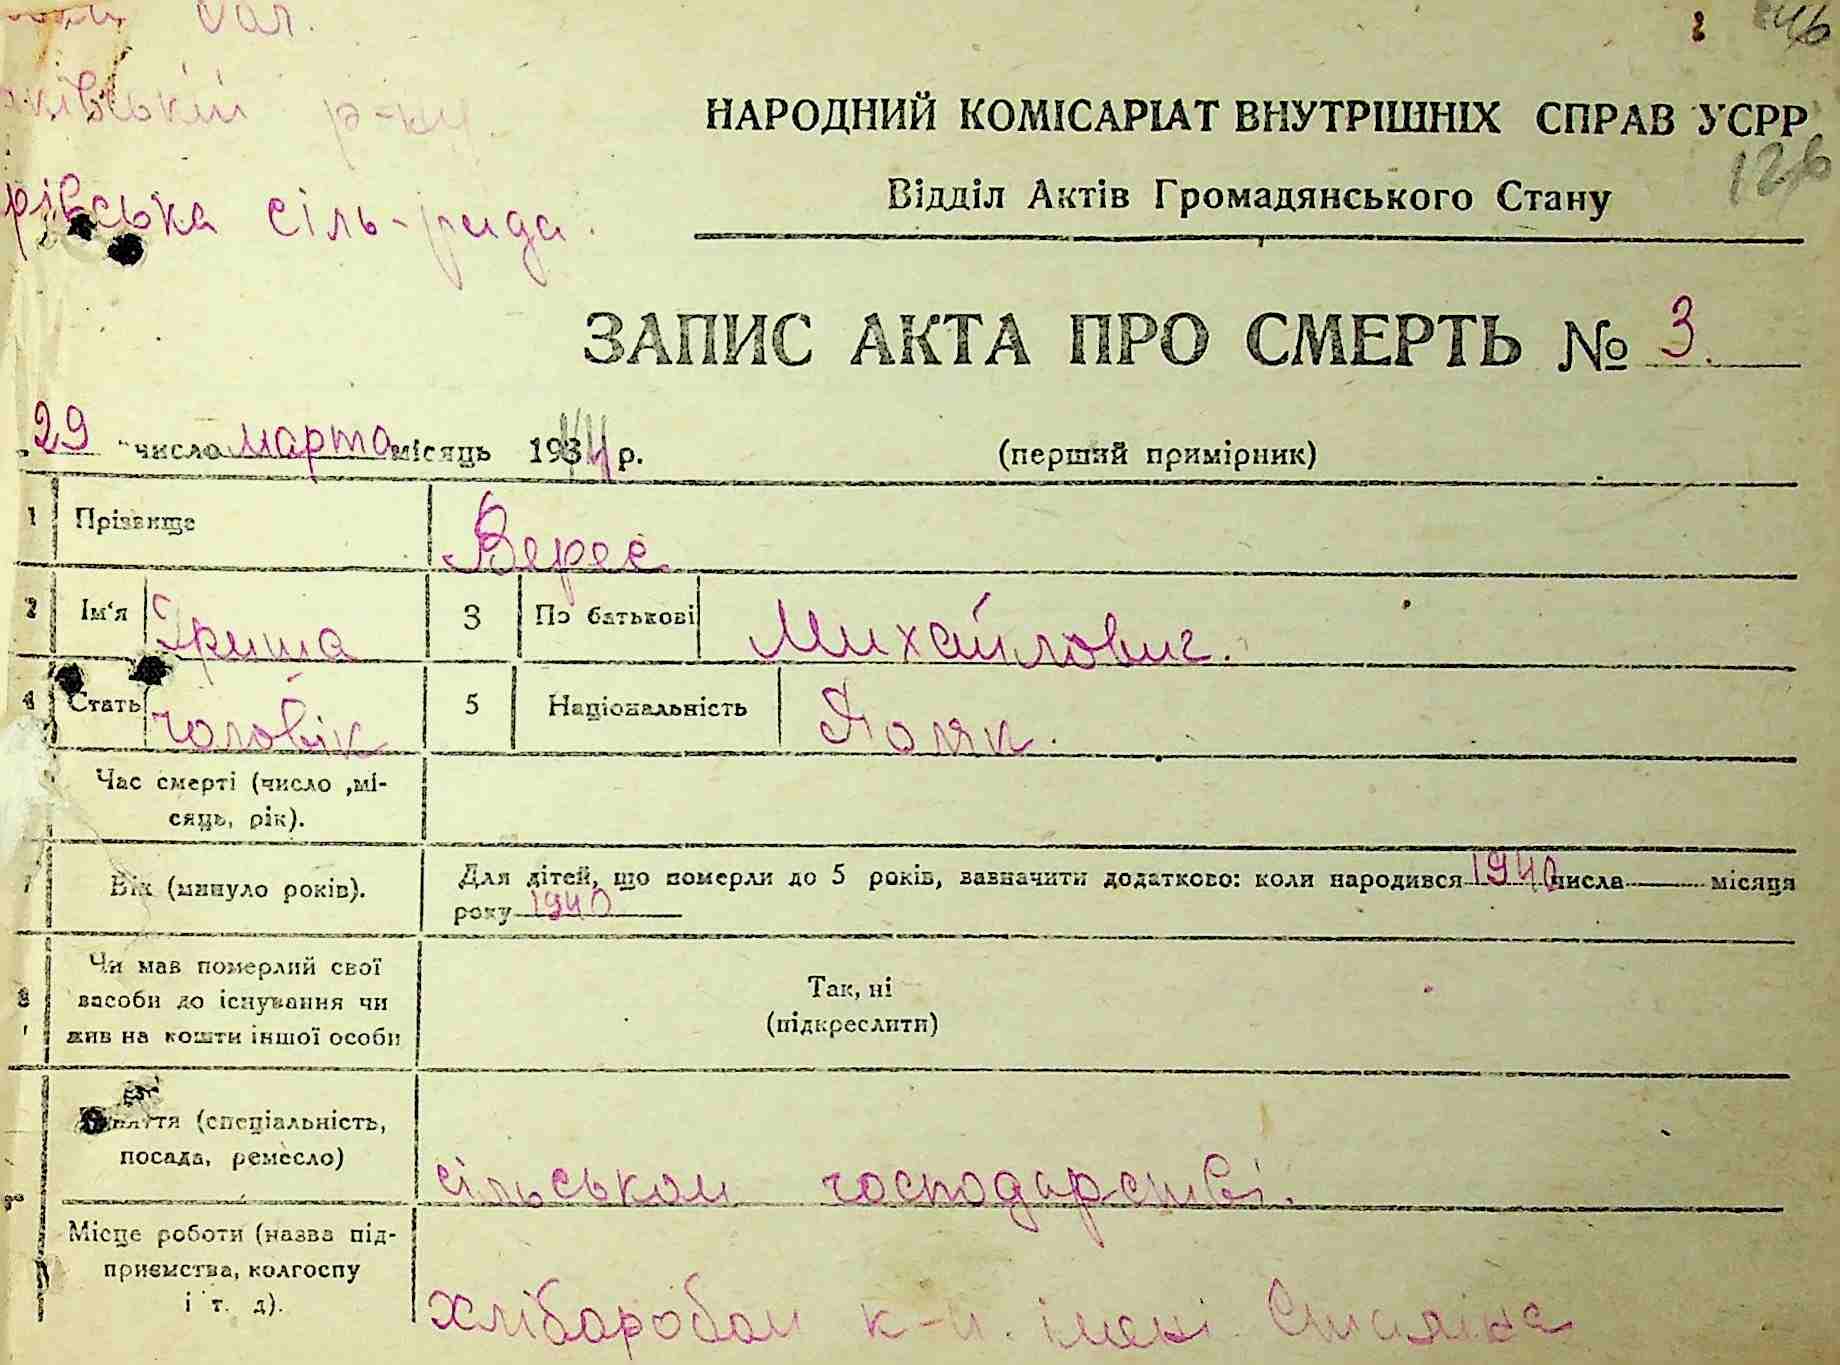 обл.
ківській р-ну.
рівська сіль-рада.
46
НАРОДНИЙ КОМІСАРІАТ ВНУТРІШНІХ СПРАВ УСРР
126
Відділ Актів Громадянського Стану
ЗАПИС АКТА ПРО СМЕРТЬ № 3.
29 число марта місяць 1944 р. (перший примірник)
1 Прізвище Верес
2 Ім'я Гриша 3 По батькові Михайлович.
4 Стать чоловік 5 Національність Поляк.
Час смерті (число ,мі-
сяць, рік).
7 Вік (минуло років). Для дітей, що померли до 5 років, зазначити додатково: коли народився 1940 числа місяця
року 1940
Чи мав померлий свої
8 засоби до існування чи
жив на кошти іншої особи
Так, ні
(підкреслити)
Заняття (спеціальність,
посада, ремесло) сільськом господарстві.
Місце роботи (назва під-
приємства, колгоспу
і т. д).
хлібаробом к-п. імені Сталіна